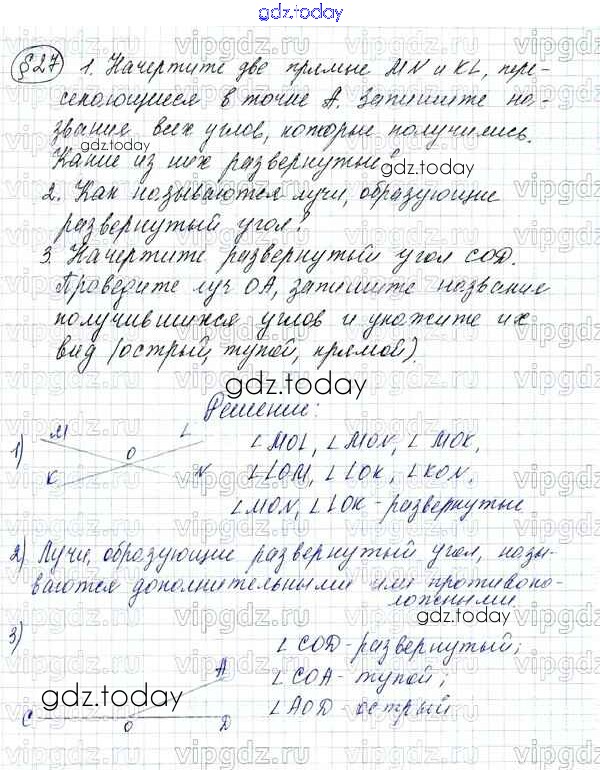 gdz.today
§27 1. Начертите две прямые MN и KL, пере-
секающиеся в точке А. Запишите на-
звания всех углов, которые получились.
Какие из них развернутые?
gdz.today
2. Как называются лучи, образующие
развернутый угол?
3. Начертите развернутый угол COD.
Проведите луч OA, запишите название
получившихся углов и укажите их
вид (острый, тупой, прямой).
gdz.today
Решение:
1) M L O K N
∠MOL, ∠MON, ∠MOK,
∠LOM, ∠LOK, ∠KON,
∠MON, ∠LOK - развернутые
2) Лучи, образующие развернутый угол, назы-
ваются дополнительными или противопо-
ложными.
3) A C O D
gdz.today
∠COD - развернутый;
∠COA - тупой;
∠AOD - острый
vipgdz.ru